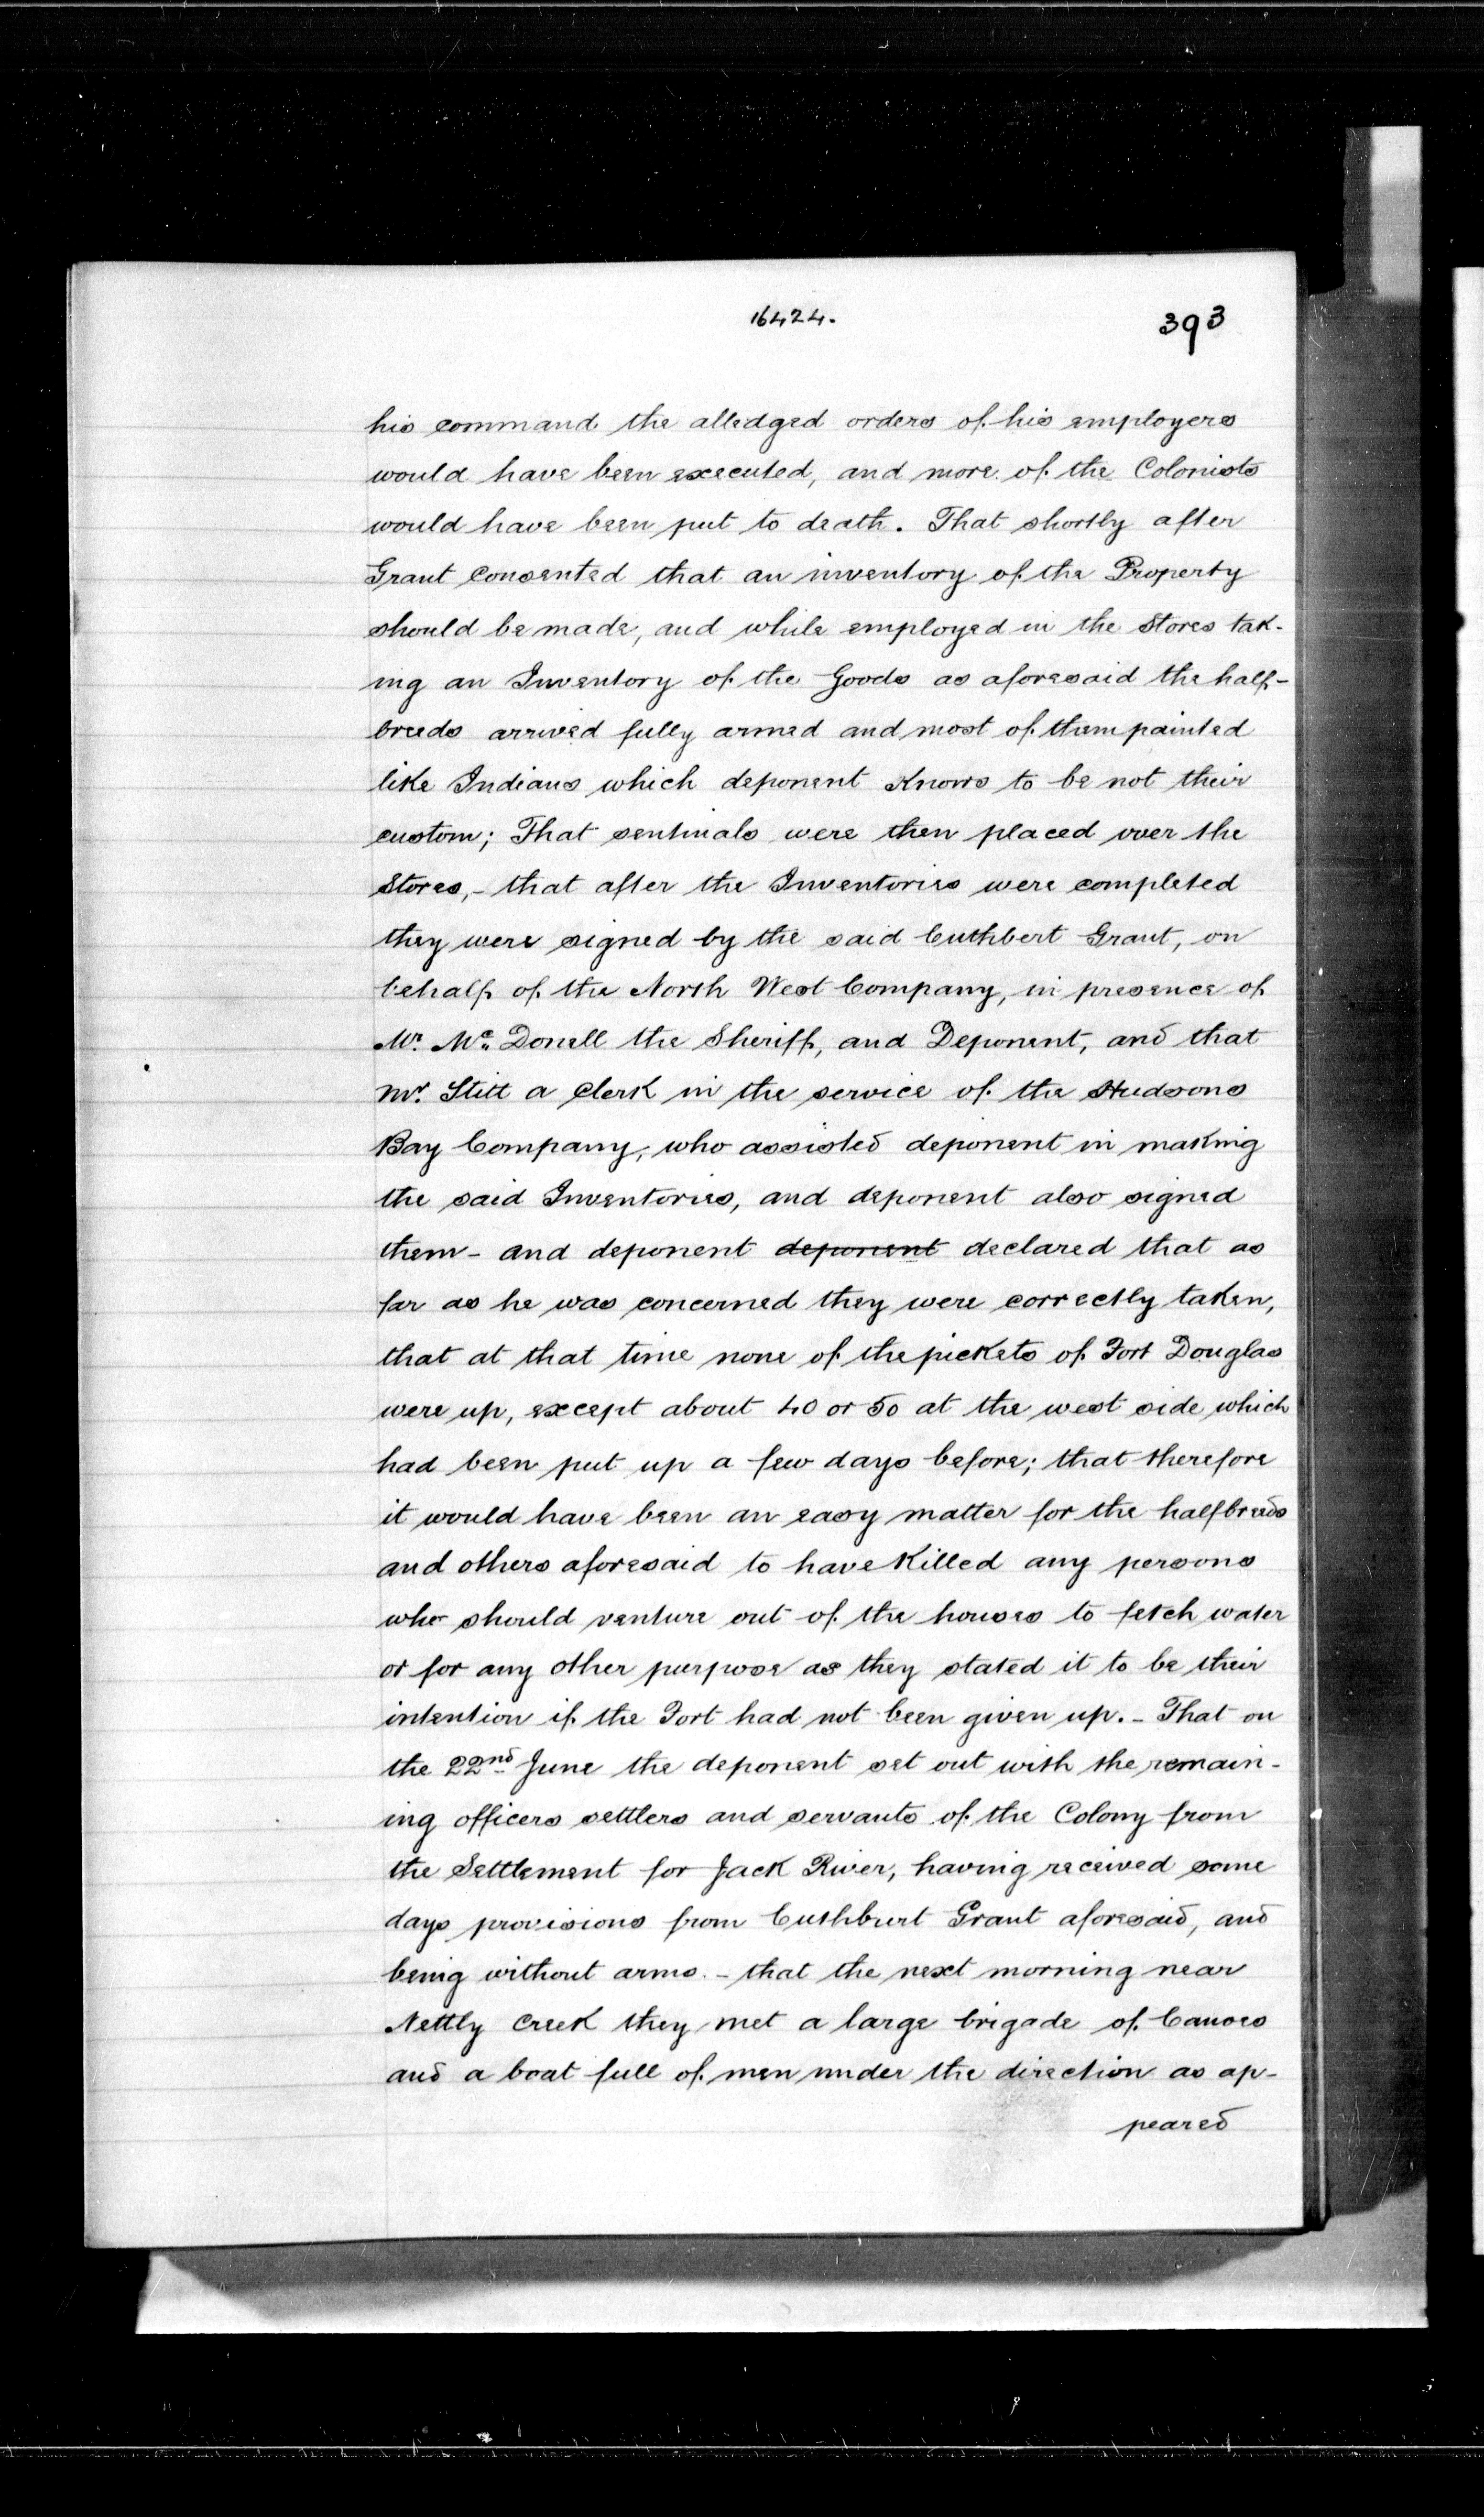 16424.
393
his command the alledged orders of his employers
would have been executed, and more of the Colonists
would have been put to death. That shortly after
Grant consented that an inventory of the Property
should be made, and while employed in the Stores tak-
ing an Inventory of the Goods as aforesaid the half-
breeds arrived fully armed and most of them painted
like Indians which deponent Knows to be not their
custom; That sentinals were then placed over the
Stores,- that after the Inventories were completed
they were signed by the said Cuthbert Grant, on
behalf of the North West Company, in presence of
Mr. Mc. Donell the Sheriff, and Deponent, and that
Mr. Stitt a Clerk in the service of the Hudsons
Bay Company, who assisted deponent in making
the said Inventories, and deponent also signed
them - and deponent deponent declared that as
far as he was concerned they were correctly taken,
that at that time none of the pickets of Fort Douglas
were up, except about 40 or 50 at the west side which
had been put up a few days before; that therefore
it would have been an easy matter for the halfbreeds
and others aforesaid to have Killed any persons
who should venture out of the houses to fetch water
or for any other purpose as they stated it to be their
intention if the Fort had not been given up. - That on
the 22nd June the deponent set out with the remain-
ing officers settlers and servants of the Colony from
the Settlement for Jack River, having received some
days provisions from Cuthburt Grant aforesaid, and
being without arms. - that the next morning near
Nettly Creek they met a large brigade of Canoes
and a boat full of men under the direction as ap-
peared